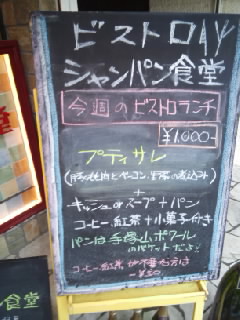 ビストロ
シャンパン食堂
今週のビストロランチ
¥1,000-
プティサレ
(豚肉とベーコン、野菜の煮込み)
+
キッシュ or スープ+パン
コーヒー、紅茶+小菓子付き
パンは手塚山ポワール
のバゲットだよ!
コーヒー、紅茶
食堂